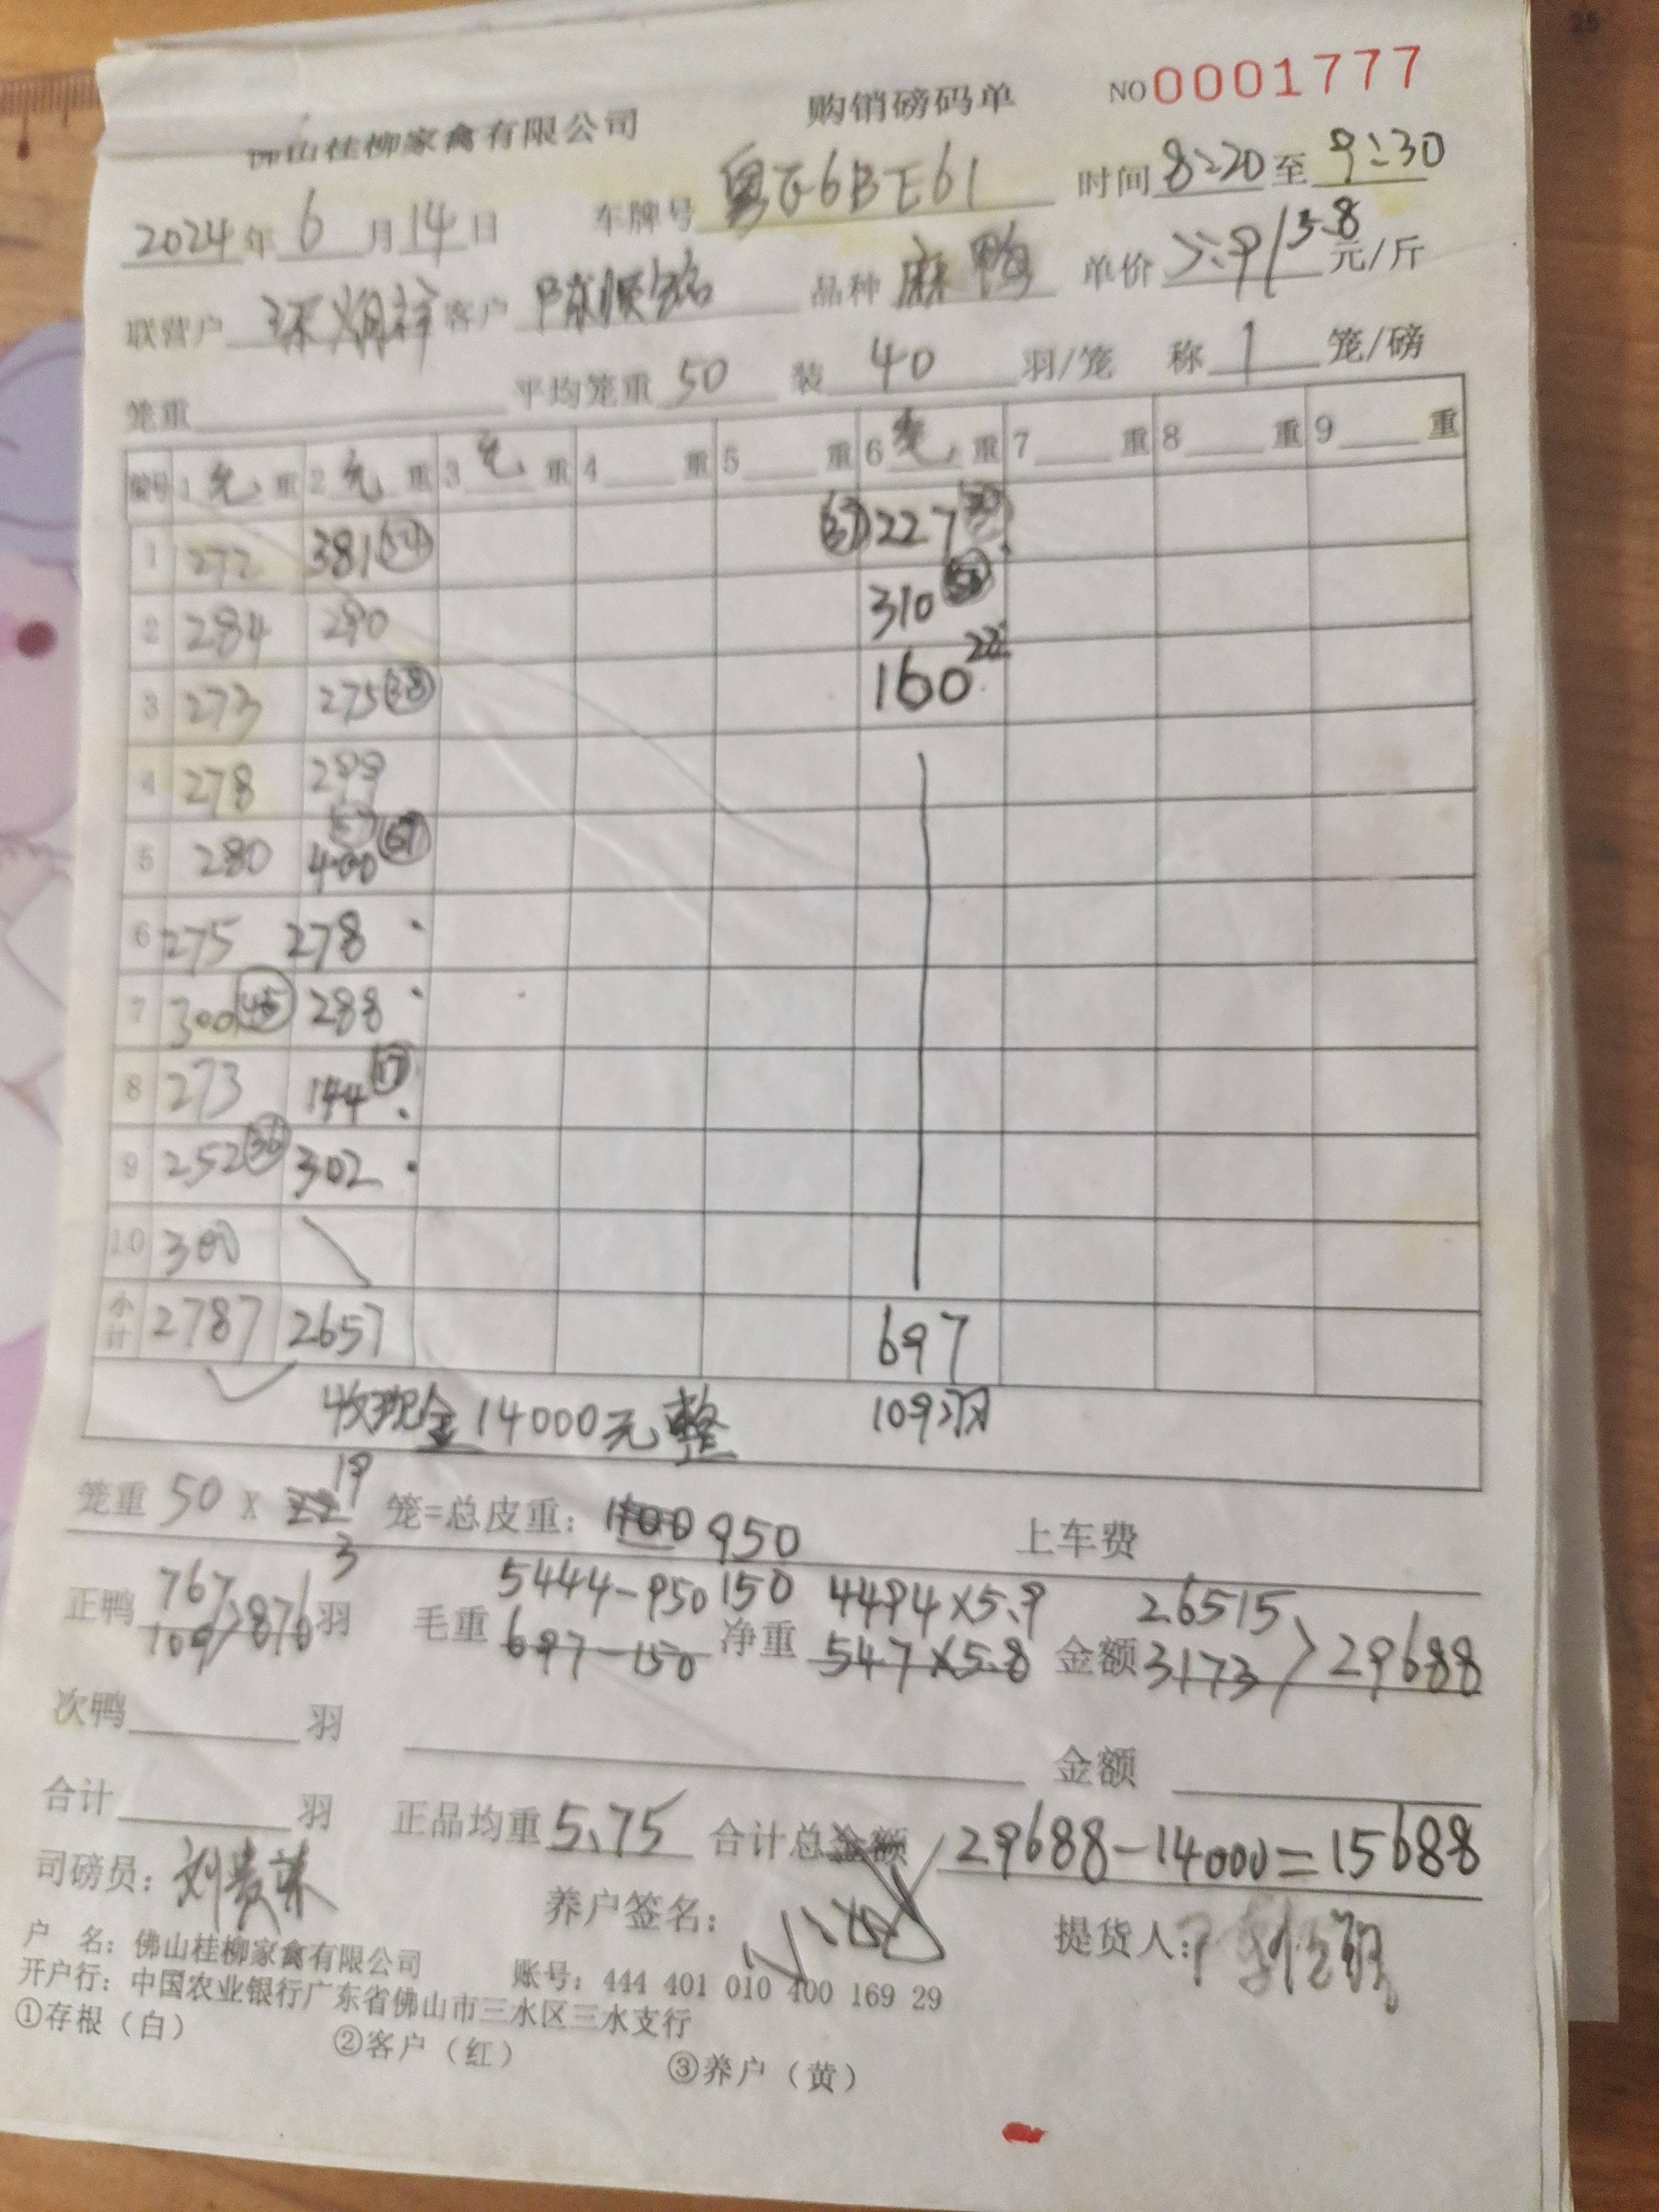 佛山桂柳家禽有限公司 购销磅码单 NO 0001777
2024年 6 月 14 日 车牌号 粤E6BE61 时间 8:20 至 9:30
联营户 客户 陈顺铭 品种 麻鸭 单价 5.9/5.8 元/斤
笼重 平均笼重 50 装 40 羽/笼 称 1 笼/磅
编号 1 重 2 重 3 重 4 重 5 重 6 重 7 重 8 重 9 重
1 272 381 (54) (37) 227 (30)
2 284 290 310 (50)
3 273 275 (38) 160 22
4 278 299
5 280 400 (57)
6 275 278
7 300 (45) 288
8 273 144 (17)
9 252 (36) 302
10 300
小计 2787 2657 697
收现金14000元整 109羽
笼重 50 X 19 笼=总皮重: 950 上车费
3 150
正鸭 767 109 >876 羽 毛重 5444-950 697-150 净重 4494×5.9 547×5.8 金额 26515 3173 > 29688
次鸭 羽 金额
合计 羽 正品均重 5.75 合计总金额 29688-14000=15688
司磅员: 养户签名: 提货人:
户 名: 佛山桂柳家禽有限公司 账号: 444 401 010 400 169 29
开户行: 中国农业银行广东省佛山市三水区三水支行
①存根（白） ②客户（红） ③养户（黄）